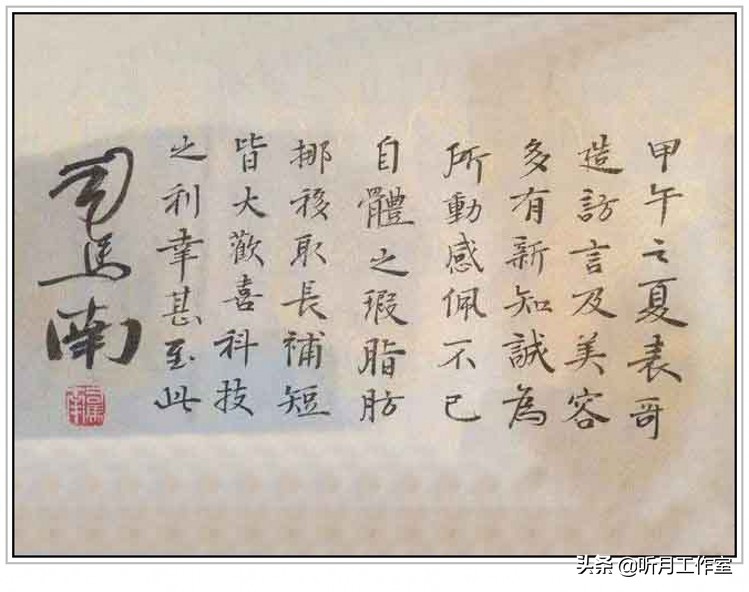 甲午之夏表哥
造訪言及美容
多有新知誠為
所動感佩不已
自體之瑕脂肪
挪移取長補短
皆大歡喜科技
之利幸甚至此
司馬南
头条 @听月工作室